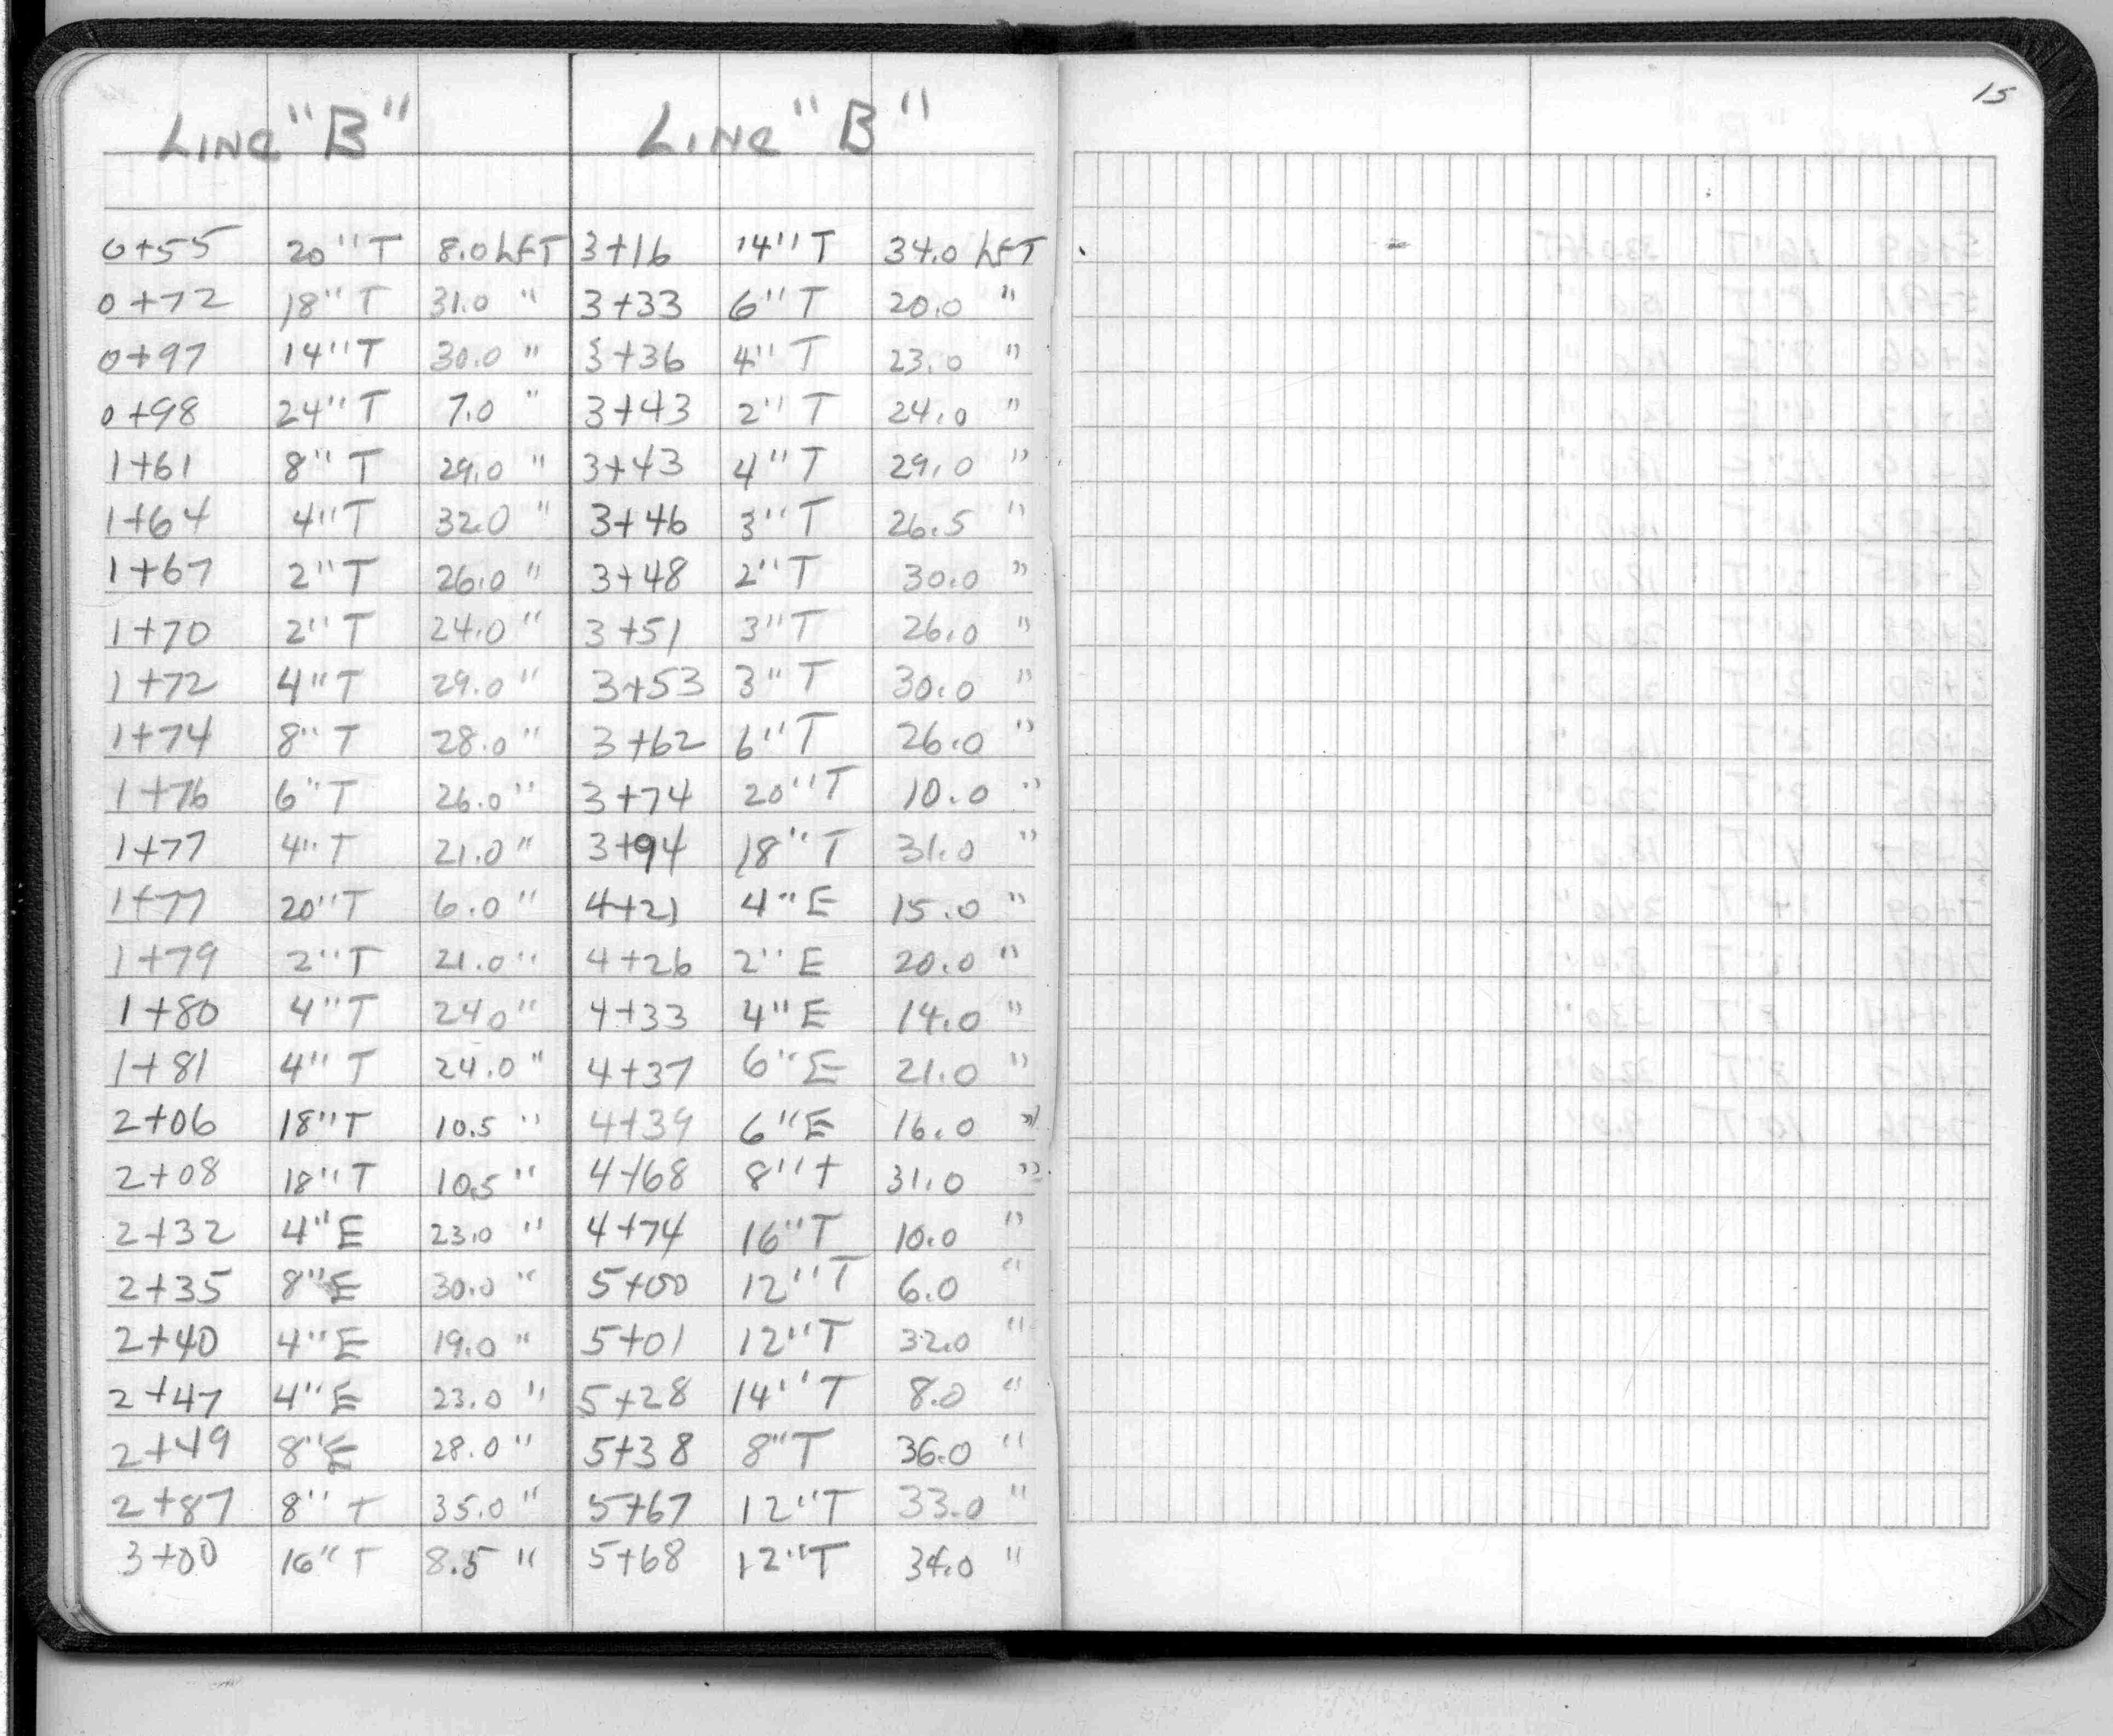 15
LINE "B" LINE "B"
0+55 20"T 8.0 LFT 3+16 14"T 34.0 LFT
0+72 18"T 31.0 " 3+33 6"T 20.0 "
0+97 14"T 30.0 " 3+36 4"T 23.0 "
0+98 24"T 7.0 " 3+43 2"T 24.0 "
1+61 8"T 29.0 " 3+43 4"T 29.0 "
1+64 4"T 32.0 " 3+46 3"T 26.5 "
1+67 2"T 26.0 " 3+48 2"T 30.0 "
1+70 2"T 24.0 " 3+51 3"T 26.0 "
1+72 4"T 29.0 " 3+53 3"T 30.0 "
1+74 8"T 28.0 " 3+62 6"T 26.0 "
1+76 6"T 26.0 " 3+74 20"T 10.0 "
1+77 4"T 21.0 " 3+94 18"T 31.0 "
1+77 20"T 6.0 " 4+21 4"E 15.0 "
1+79 2"T 21.0 " 4+26 2"E 20.0 "
1+80 4"T 24.0 " 4+33 4"E 14.0 "
1+81 4"T 24.0 " 4+37 6"E 21.0 "
2+06 18"T 10.5 " 4+39 6"E 16.0 "
2+08 18"T 10.5 " 4+68 8"T 31.0 "
2+32 4"E 23.0 " 4+74 16"T 10.0 "
2+35 8"E 30.0 " 5+00 12"T 6.0 "
2+40 4"E 19.0 " 5+01 12"T 32.0 "
2+47 4"E 23.0 " 5+28 14"T 8.0 "
2+49 8"E 28.0 " 5+38 8"T 36.0 "
2+87 8"T 35.0 " 5+67 12"T 33.0 "
3+00 16"T 8.5 " 5+68 12"T 34.0 "